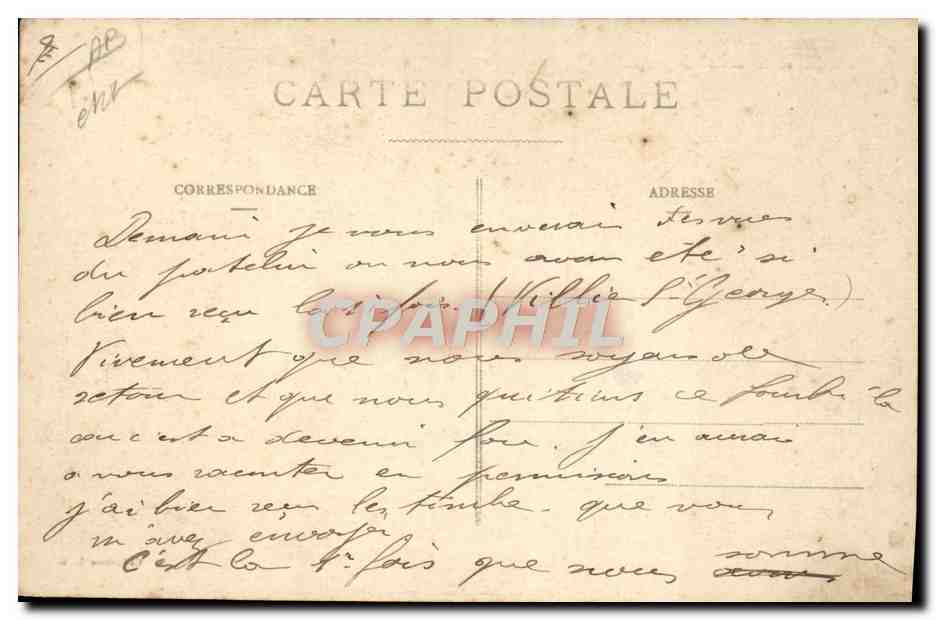 AB
CARTE POSTALE
CORRESPONDANCE
ADRESSE
Demain je vous enverais des vues
du patelin ou nous avon été si
bien reçu la fois (Villie St Georges)
CPAPHIL
Vivement que nous soyans de
retour et que nous quittions ce fourbi-là
ou c'est a devenir fou. J'en aurais
a vous raconter en permissions
j'ai bien reçu les timbre que vous
m'avez envoyer
C'est la 1re fois que nous somme